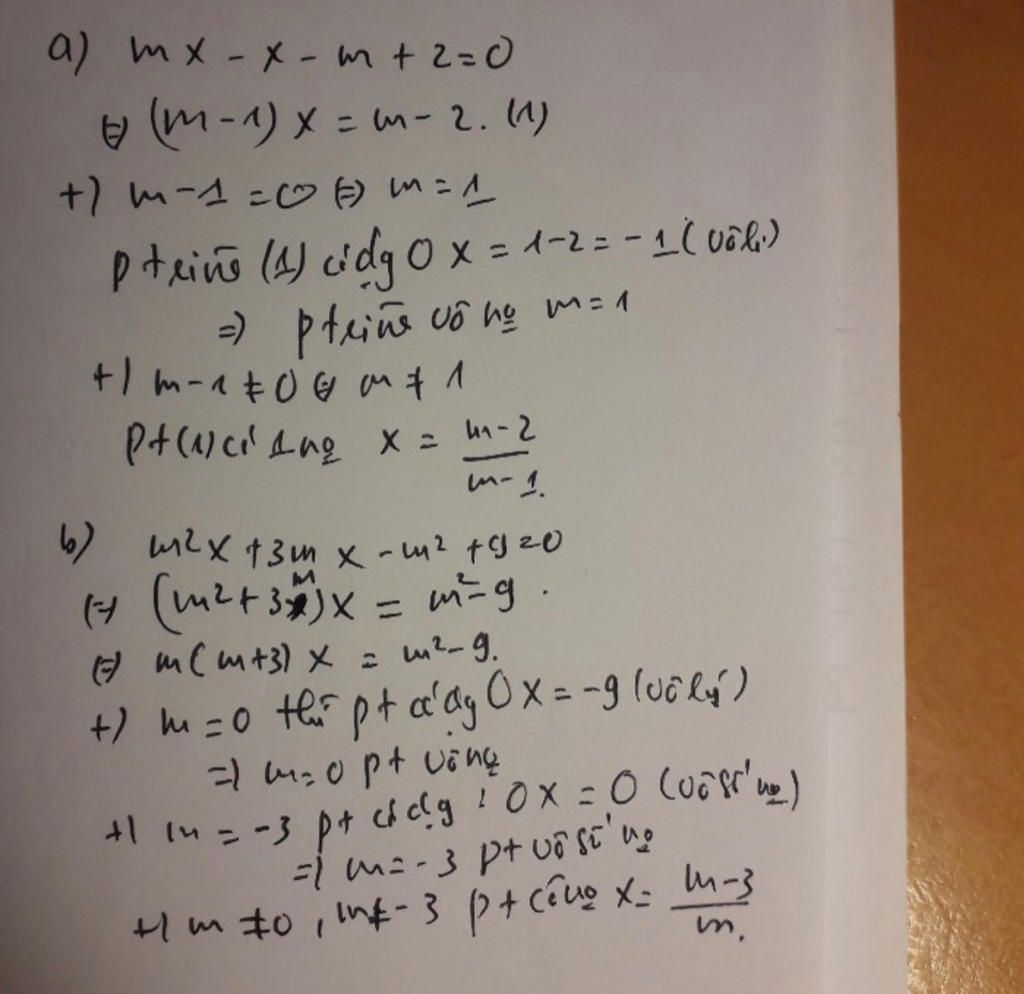 a) mx - x - m + 2 = 0
⇔ (m-1) x = m - 2. (1)
+) m - 1 = 0 ⇔ m = 1
ptrình (1) có dạng 0x = 1-2 = -1 (vô lí)
=> ptrình vô no m = 1
+) m - 1 ≠ 0 ⇔ m ≠ 1
pt (1) có 1 no x = \frac{m-2}{m-1}.
b) m²x + 3mx - m² + 9 = 0
⇔ (m² + 3m)x = m² - 9.
⇔ m(m+3) x = m² - 9.
+) m = 0 thì pt có dạng 0x = -9 (vô lý)
=> m = 0 pt vô no
+) m = -3 pt có dạng : 0x = 0 (vô số no)
=> m = -3 pt vô số no
+) m ≠ 0, m ≠ -3 pt có no x = \frac{m-3}{m}.